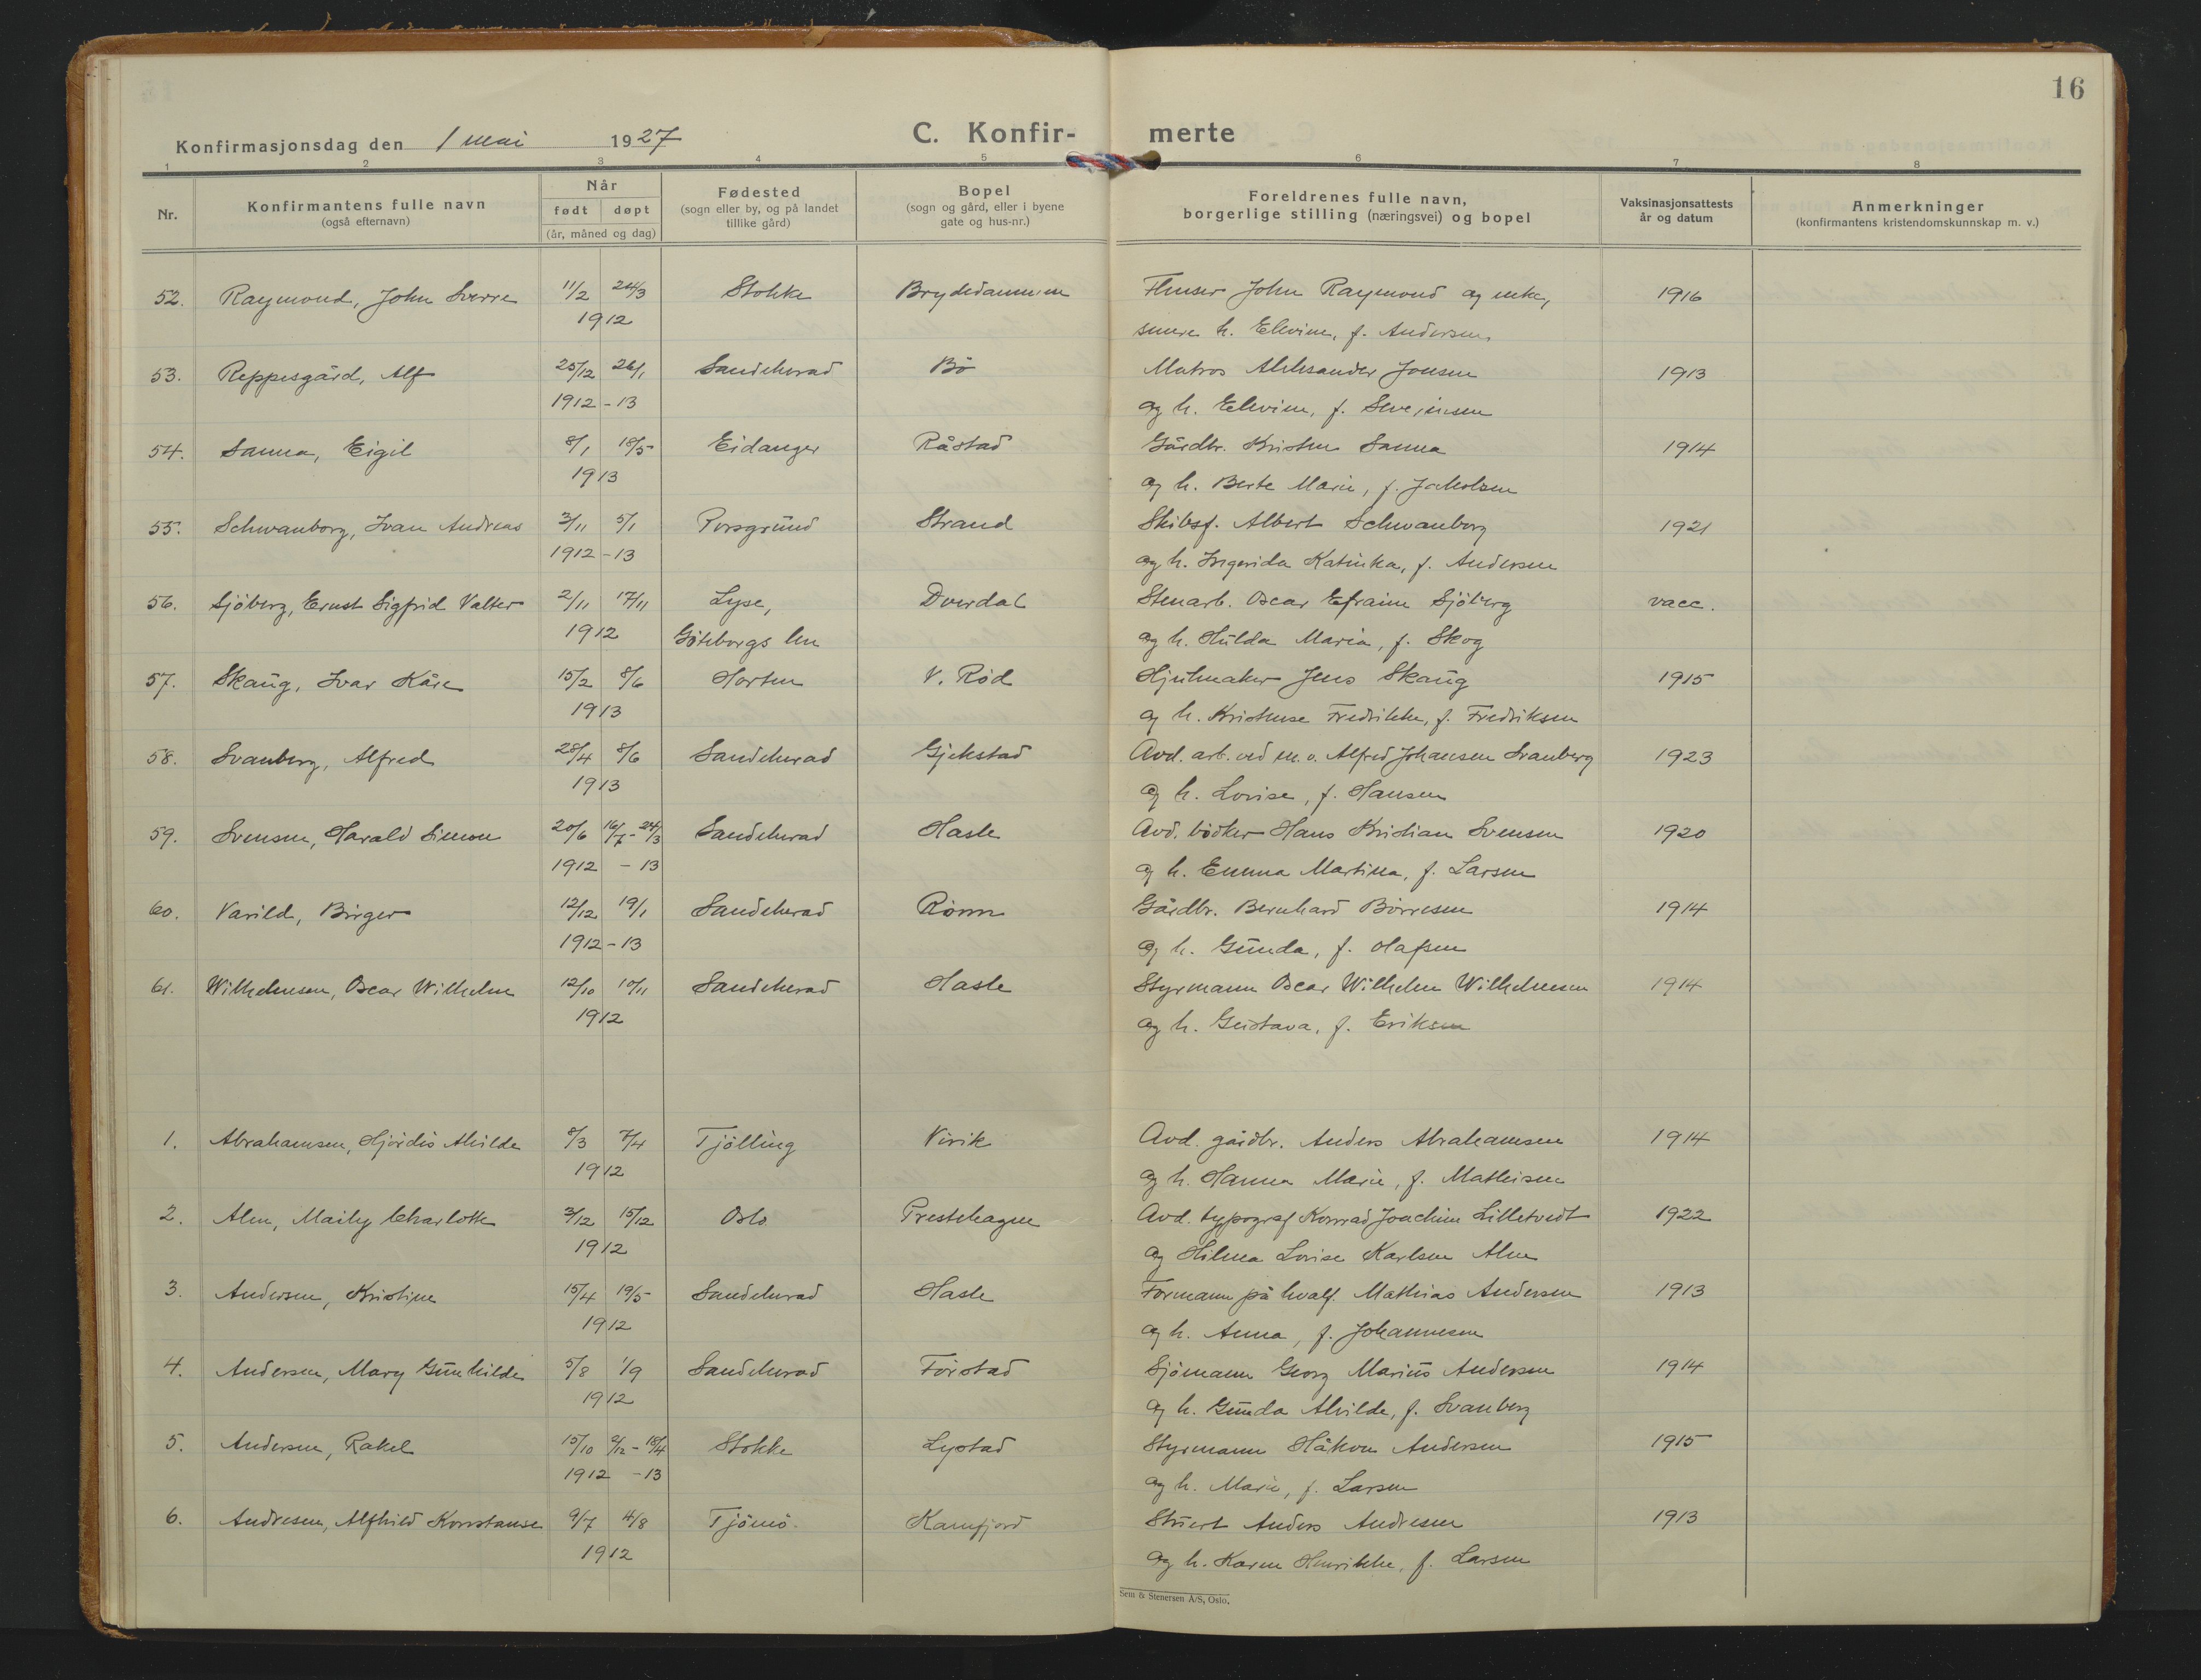 16
Konfirmasjonsdag den 1 mai 1927
C. Konfir- merte
1 2 3 4 5 6 7 8
Nr.
Konfirmantens fulle navn
(også efternavn)
Når
født døpt
(år, måned og dag)
Fødested
(sogn eller by, og på landet
tillike gård)
Bopel
(sogn og gård, eller i byene
gate og hus-nr.)
Foreldrenes fulle navn,
borgerlige stilling (næringsvei) og bopel
Vaksinasjonsattests
år og datum
Anmerkninger
(konfirmantens kristendomskunnskap m. v.)
52. Raymond, John Sverre 11/2 24/3 Stokke Brydedammen Flenser John Raymond og enke, 1916
1912 senere h. Elevine, f. Andersen
53. Reppesgård, Alf 25/12 26/1 Sandeherad Bö Matros Aleksander Jonsen 1913
1912 - 13 og h. Elevine, f. Severinsen
54. Sanna, Eigil 8/1 18/5 Eidanger Råstad Gårdbr. Kristen Sanna 1914
1913 og h. Berte Marie, f. Jakobsen
55. Schwanborg, Ivan Andreas 3/11 5/1 Porsgrund Strand Skibsf. Albert Schwanborg 1921
1912 - 13 og h. Ingerida Katinka, f. Andersen
56. Sjöberg, Ernst Sigfrid Valter 2/11 17/11 Lyse, Dverdal Stenarb. Oscar Efraim Sjöberg vacc.
1912 Göteborgs len og h. Hulda Maria, f. Skog
57. Skaug, Ivar Kåre 15/2 8/6 Horten V. Röd Hjulmaker Jens Skaug 1915
1913 og h. Kristense Fredrikke, f. Fredriksen
58. Svanberg, Alfred 28/4 8/6 Sandeherad Gjekstad Avd. arb. ved m.v. Alfred Johansen Svanberg 1923
1913 og h. Lovise, f. Hansen
59. Svensen, Harald Simon 20/6 16/7 - 24/3 Sandeherad Hasle Avd. bödker Hans Kristian Svensen 1920
1912 - 13 og h. Emma Martina, f. Larsen
60. Varild, Birger 12/12 19/1 Sandeherad Rönn Gårdbr. Bernhard Börresen 1914
1912 - 13 og h. Gunda, f. Olafsen
61. Wilhelmsen, Oscar Wilhelm 12/10 10/11 Sandeherad Hasle Styrmann Oscar Wilhelm Wilhelmsen 1914
1912 og h. Gustava, f. Eriksen
1. Abrahamsen, Hjördis Alvilde 8/3 7/4 Tjölling Virik Avd. gårdbr. Anders Abrahamsen 1914
1912 og h. Hanna Marie, f. Mathisen
2. Alm, Maily Charlotte 3/12 15/12 Oslo Prestehagen Avd. typograf Konrad Joachim Lilletvedt 1922
1912 og Hilma Lovise Karlsen Alm
3. Andersen, Kristine 15/4 19/5 Sandeherad Hasle Formann på hvalf. Mathias Andersen 1913
1912 og h. Anna, f. Johannesen
4. Andersen, Mary Gunhilde 5/8 1/9 Sandeherad Förstad Sjömann Georg Marius Andersen 1914
1912 og h. Gunda Alvilde, f. Svanberg
5. Andersen, Rakel 15/10 8/12 - 18/4 Stokke Lystad Styrmann Håkon Andersen 1915
1912 - 13 og h. Marie, f. Larsen
6. Andresen, Alfhild Konstanse 9/7 4/8 Tjömö Kamfjord Stuert Anders Andresen 1913
1912 og h. Karen Henrikke, f. Larsen
Sem & Stenersen A/S, Oslo.